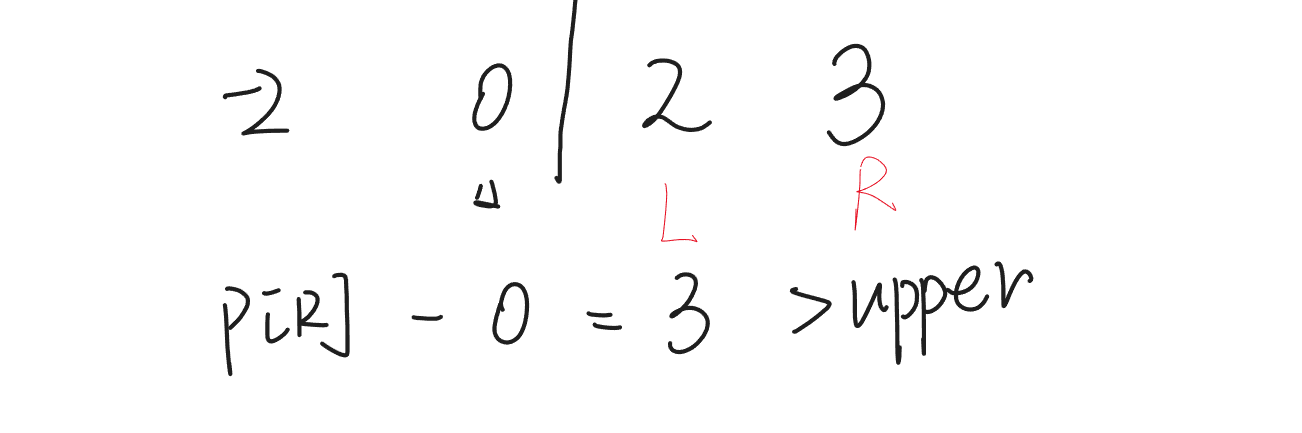 -2 0 | 2 3
Δ L R
P[R] - 0 = 3 > upper